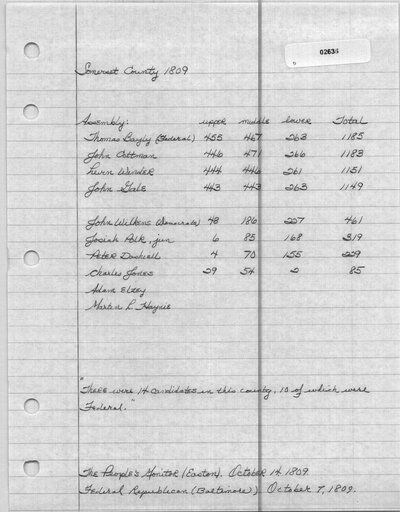 02636
Somerset County 1809
Assembly: upper middle lower Total
Thomas Bayly (Federal) 455 467 263 1185
John Cottman 446 471 266 1183
Levin Winder 444 446 261 1151
John Gale 443 443 263 1149
John Wilkins (Democrat) 48 186 227 461
Josiah Polk, jun 6 85 168 319
Peter Dashiell 4 70 155 229
Charles Jones 29 54 2 85
Adam Elzey
Martin L Haynie
"There were 14 candidates in this county, 10 of which were
Federal."
The People's Monitor (Easton). October 14, 1809.
Federal Republican (Baltimore). October 7, 1809.